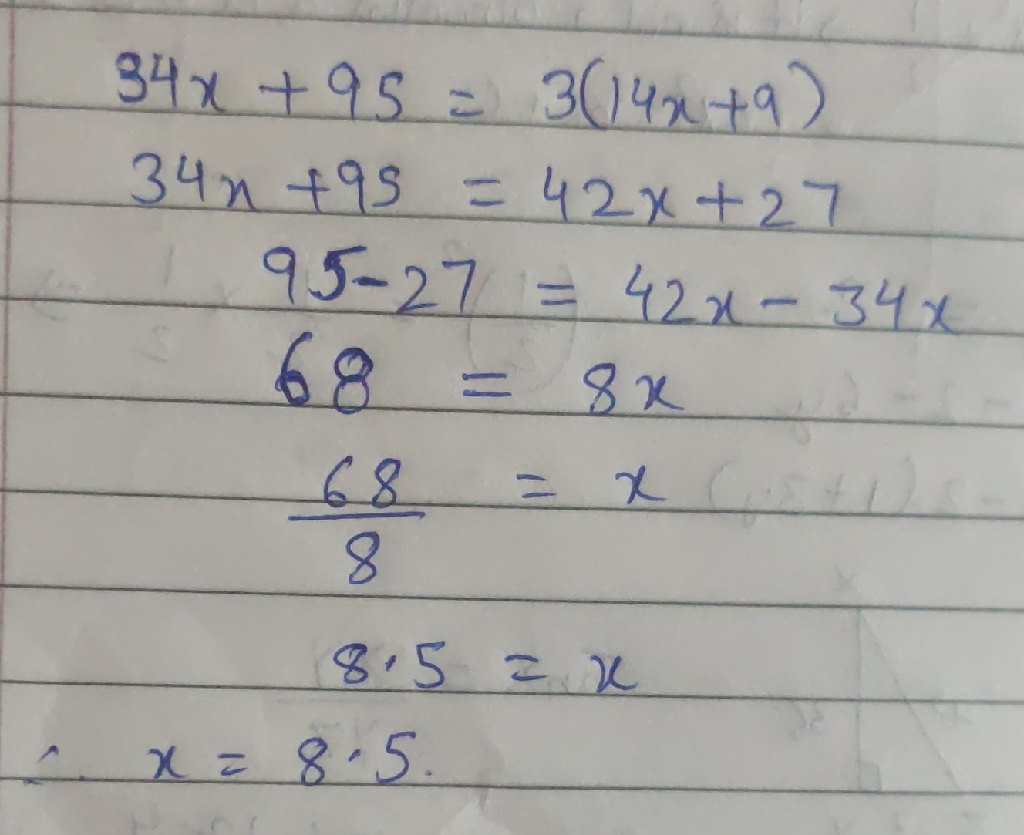 34x + 95 = 3(14x+9)
34x +95 = 42x+27
95-27 = 42x - 34x
68 = 8x
68/8 = x
8.5 = x
∴ x = 8.5.